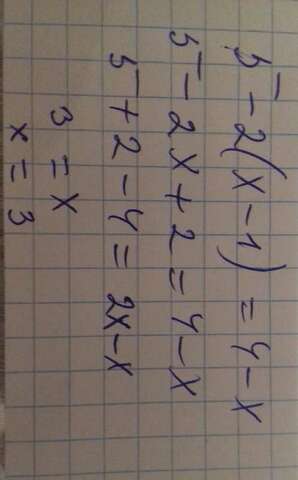 5 - 2(x - 1) = 4 - x
5 - 2x + 2 = 4 - x
5 + 2 - 4 = 2x - x
3 = x
x = 3